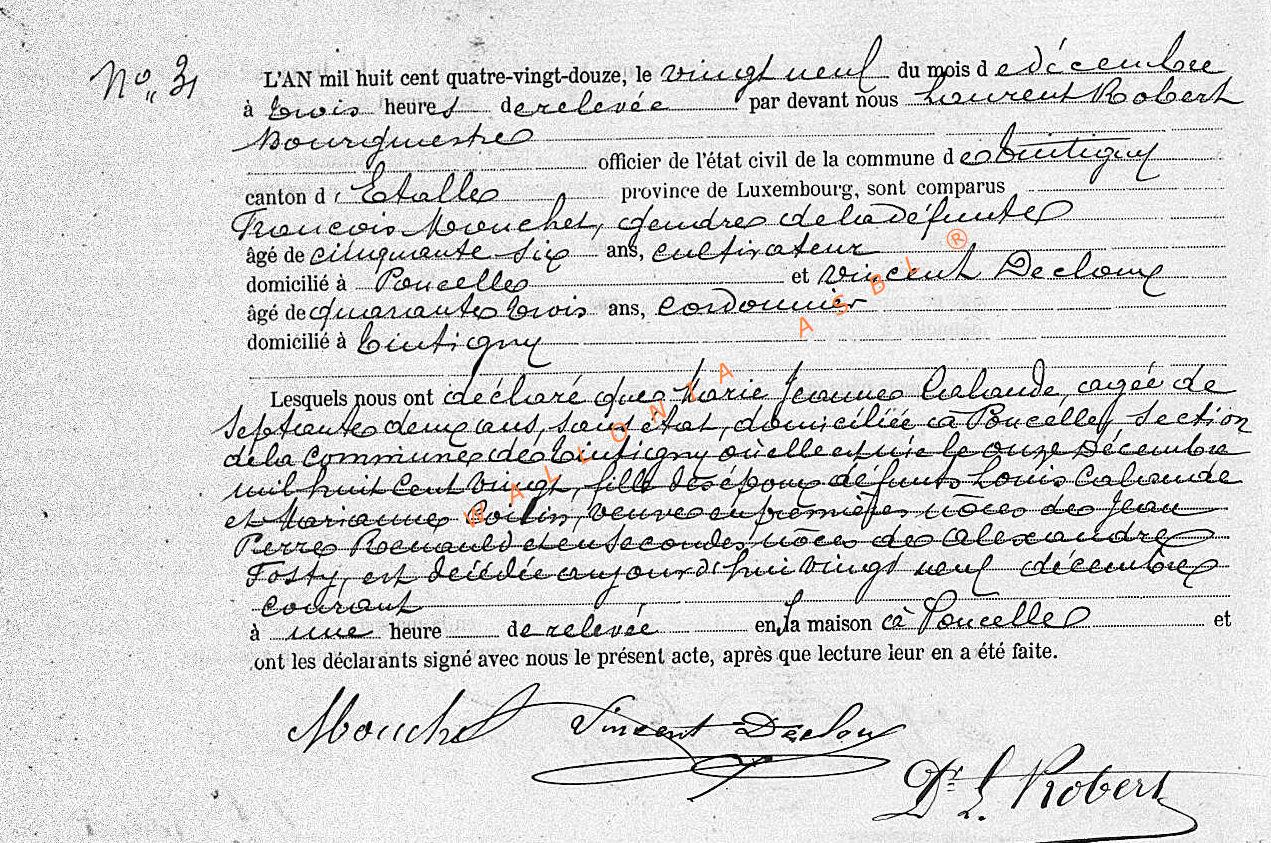 No 31
L'AN mil huit cent quatre-vingt-douze, le vingt neuf du mois de décembre
à trois heures de relevée par devant nous Laurent Robert
Bourgmestre
officier de l'état civil de la commune de Tintigny
canton d'Etalle province de Luxembourg, sont comparus
François Mouchet, gendre de la défunte
âgé de cinquante six ans, cultivateur
domicilié à Poncelle et Vincent Decloux
âgé de quarante trois ans, cordonnier
domicilié à Tintigny
Lesquels nous ont déclaré que Marie Jeanne Lalande, agée de
septante deux ans, sans état, domiciliée à Poncelle, section
de la commune de Tintigny où elle est née le onze Décembre
mil huit cent vingt, fille des époux défunts Louis Lalande
et Marianne, veuve en premières nôces de Jean
Pierre Renauld et en secondes nôces de Alexandre
Fosty, est décédée aujourd'hui vingt neuf décembre
courant
à une heure de relevée en la maison à Poncelle et
ont les déclarants signé avec nous le présent acte, après que lecture leur en a été faite.
Mouchet Vincent Decloux
Dr L. Robert
WALLONIA ASBL ®